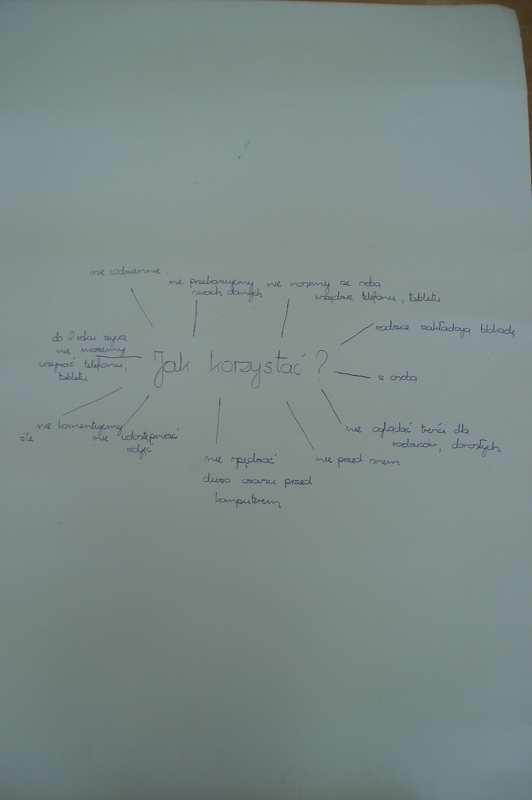 nie codziennie
nie przekazujemy
swoich danych
nie nosimy ze sobą
wszędzie telefonu, tabletu
rodzice zakładają blokadę
z osobą
nie oglądać treści dla
rodziców, dorosłych
nie przed snem
nie spędzać
dużo czasu przed
komputerem
nie udostępniać
zdjęć
nie komentujemy
źle
do 2 roku życia
nie możemy
używać telefonu,
tabletu
Jak korzystać?